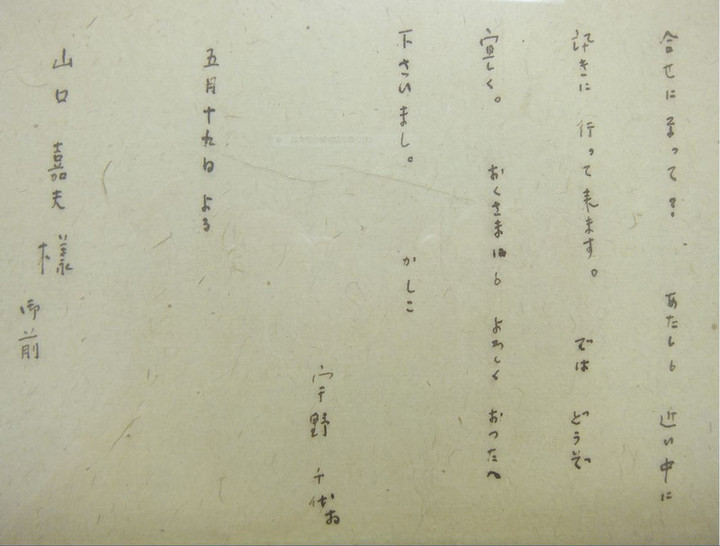 合せになって？ あたしも 近い中に
訊きに 行って来ます。 では どうぞ
宜しく。 おくさまにも よろしく おつたへ
下さいまし。 かしこ
宇野 千代
五月十九日 よる
山口 嘉夫 様
御前